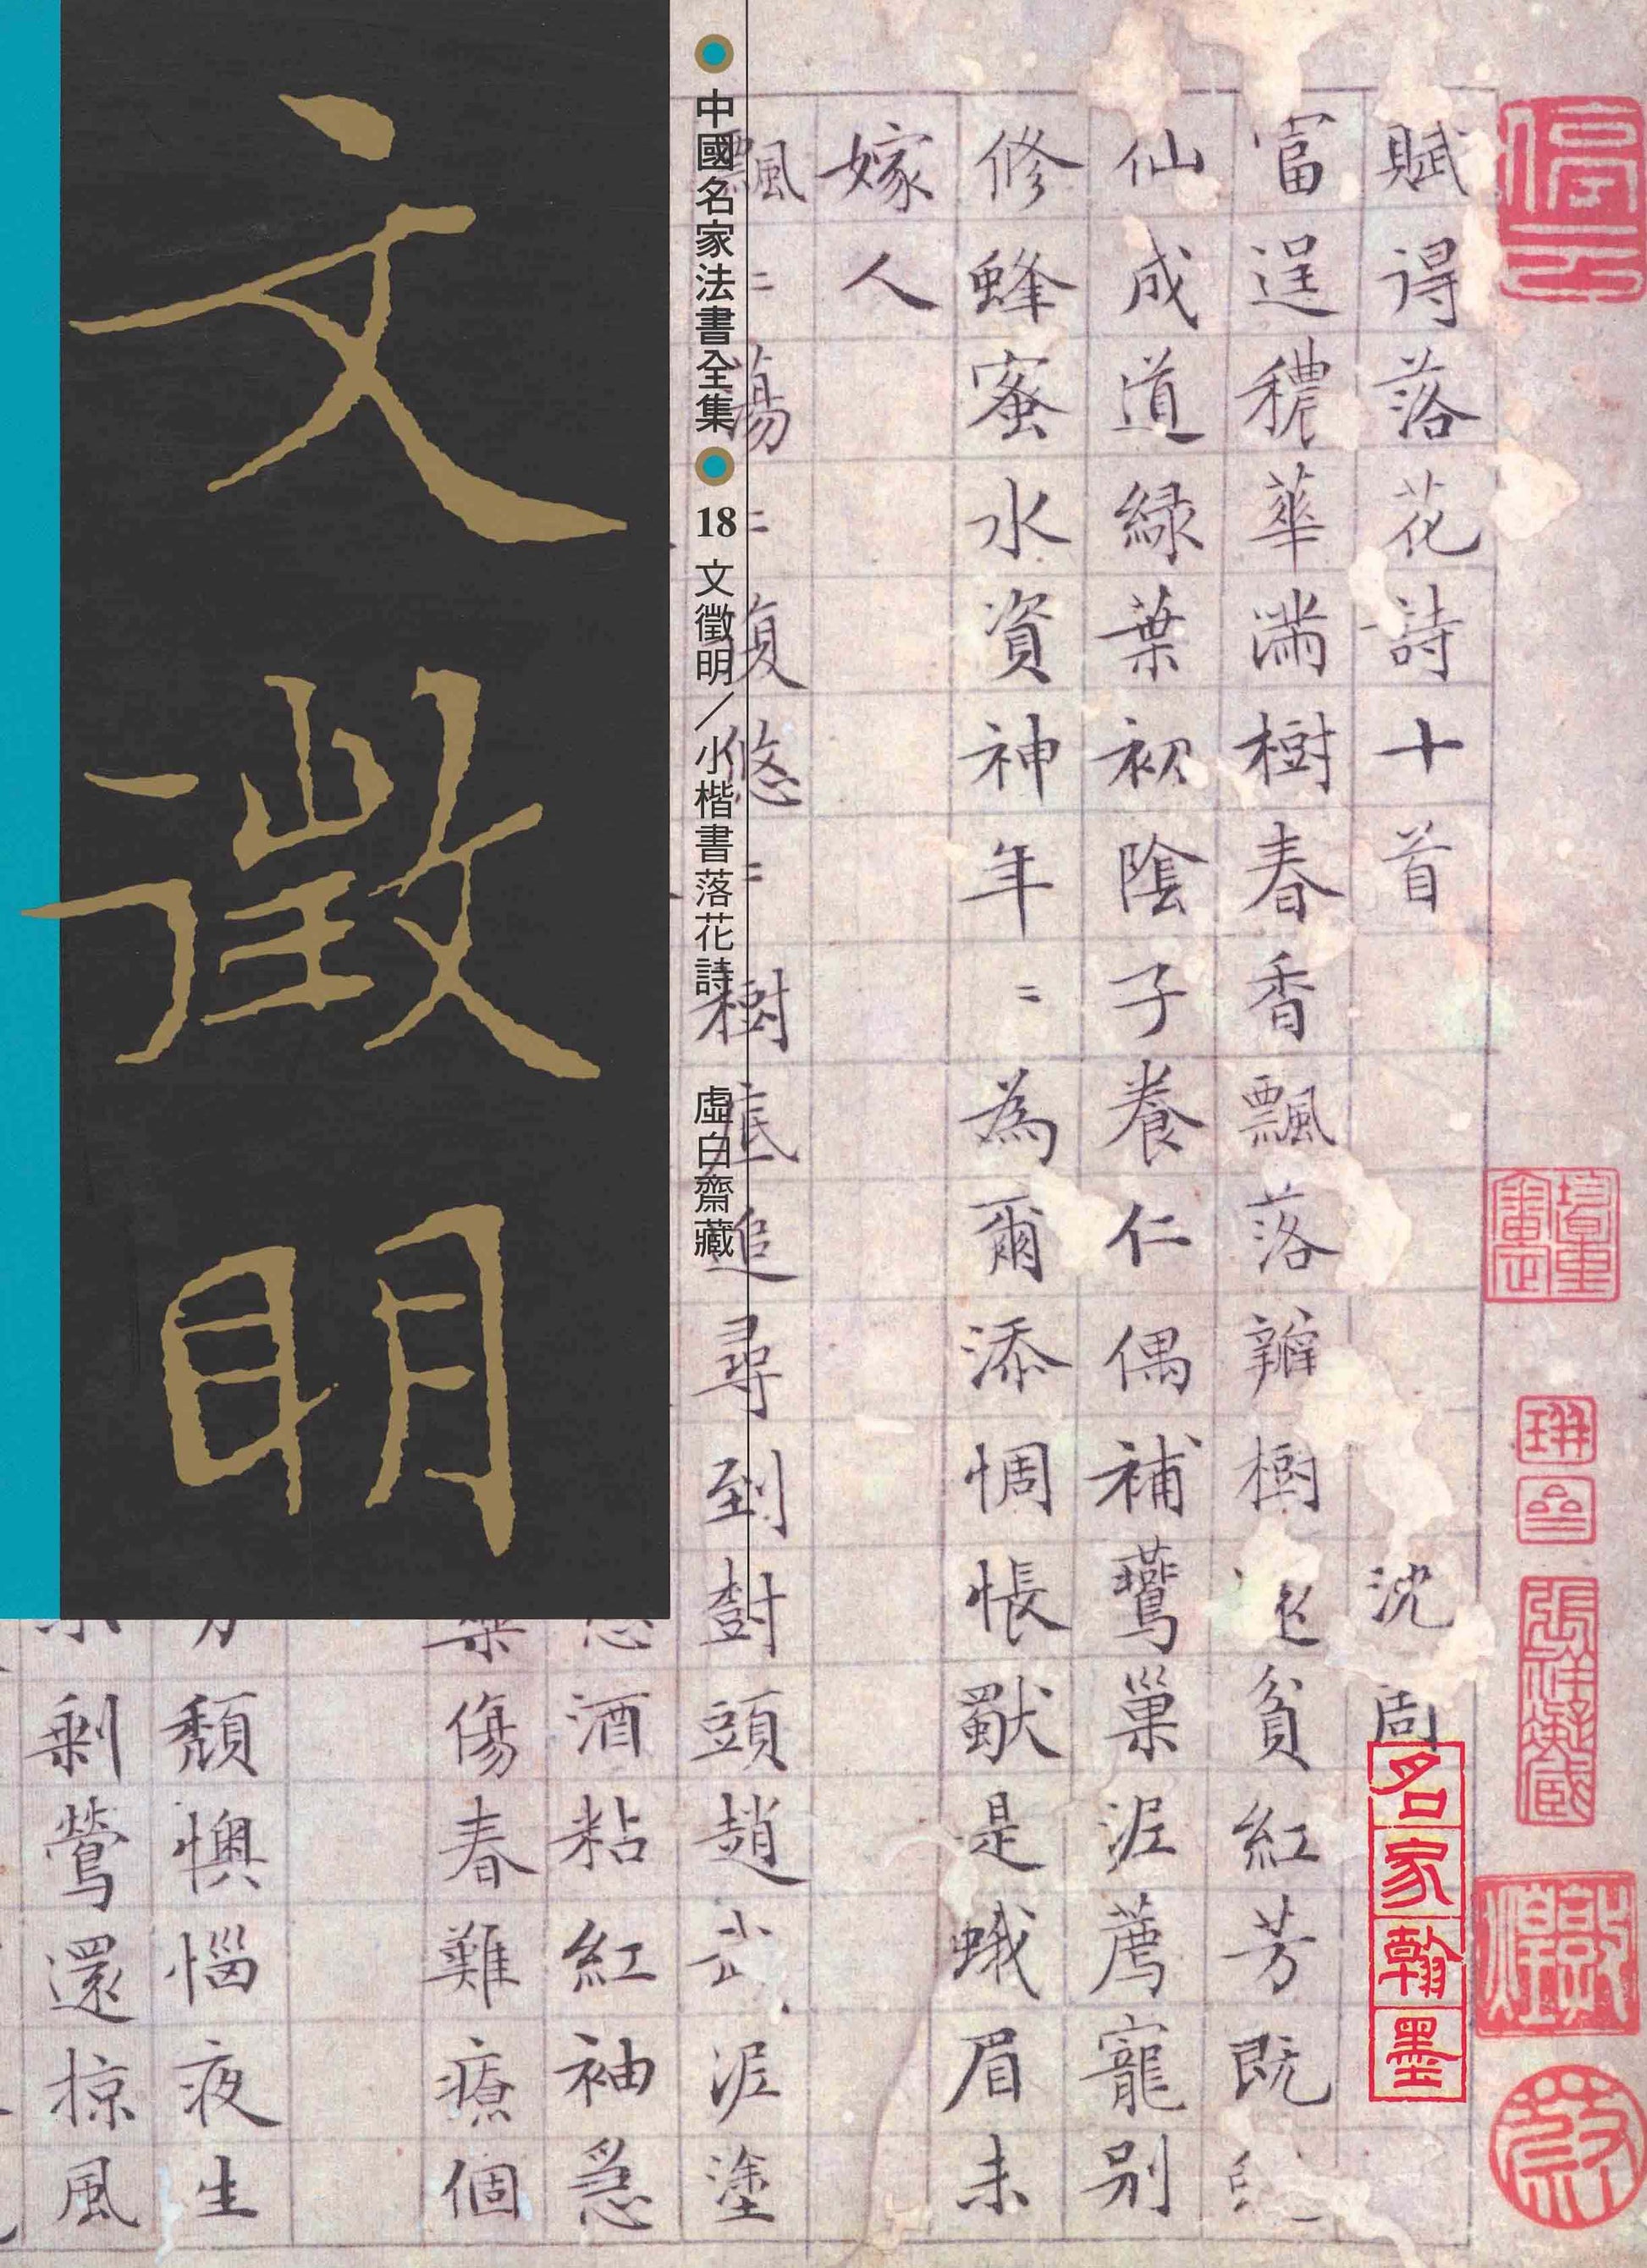 文徵明
中國名家法書全集
18 文徵明／小楷書落花詩 虛白齋藏
賦得落花詩十首 沈周
富逞穠華滿樹春香飄落瓣樹還貧紅芳既
仙成道綠葉初陰子養仁偶補鶯巢泥薦寵別
修蜂蜜水資神年〻為爾添惆悵獸是蛾眉未
嫁人
飄〻蕩〻復悠〻樹底追尋到樹頭趙武泥塗
酒粘紅袖急
傷春難療個
頹懊惱夜生
剩鶯還掠風
名家翰墨